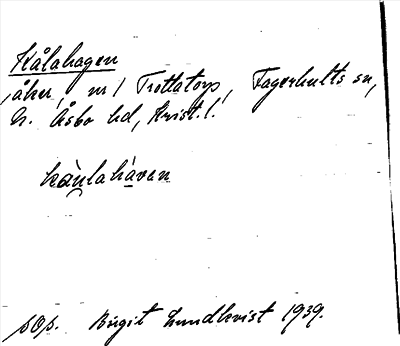 Kålahagen
åker, nr 1 Trottatorp, Fagerhults sn,
N. Åsbo hd, Krist. l.
kàulahàvan
pOp. Birgit Lundkvist 1939.